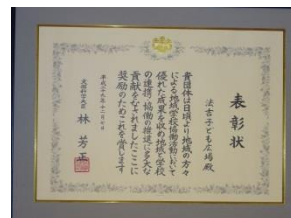 表彰状
法吉子ども広場殿
貴団体は日頃より地域の方々
による地域学校協働活動において
優れた成果を収め地域と学校
の連携・協働の推進に多大な
貢献をなされましたここに
奨励のためこれを賞します
平成二十九年十二月七日
文部科学大臣 林 芳正